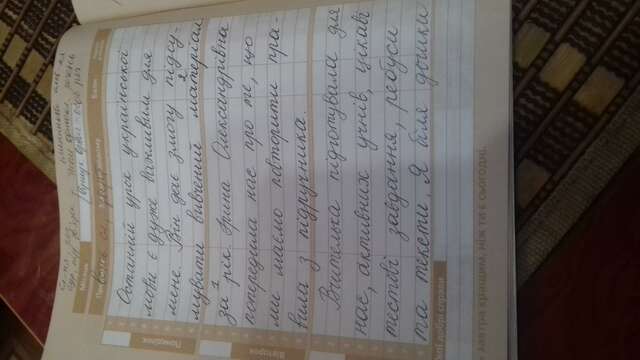 Останній урок української
мови є дуже важливим для
мене. Він дає змогу підсу-
мувати вивчений матеріал
за 1 рік. Ірина Олександрівна
попередила нас про те, що
ми маємо повторити пра-
вила з підручника.
Вчителька підготувала для
нас, активних учнів, цікаві
тестові завдання, ребуси
та тексти. Я біля дошки
Понеділок
Вівторок
завтра кращим, ніж ти є сьогодні.